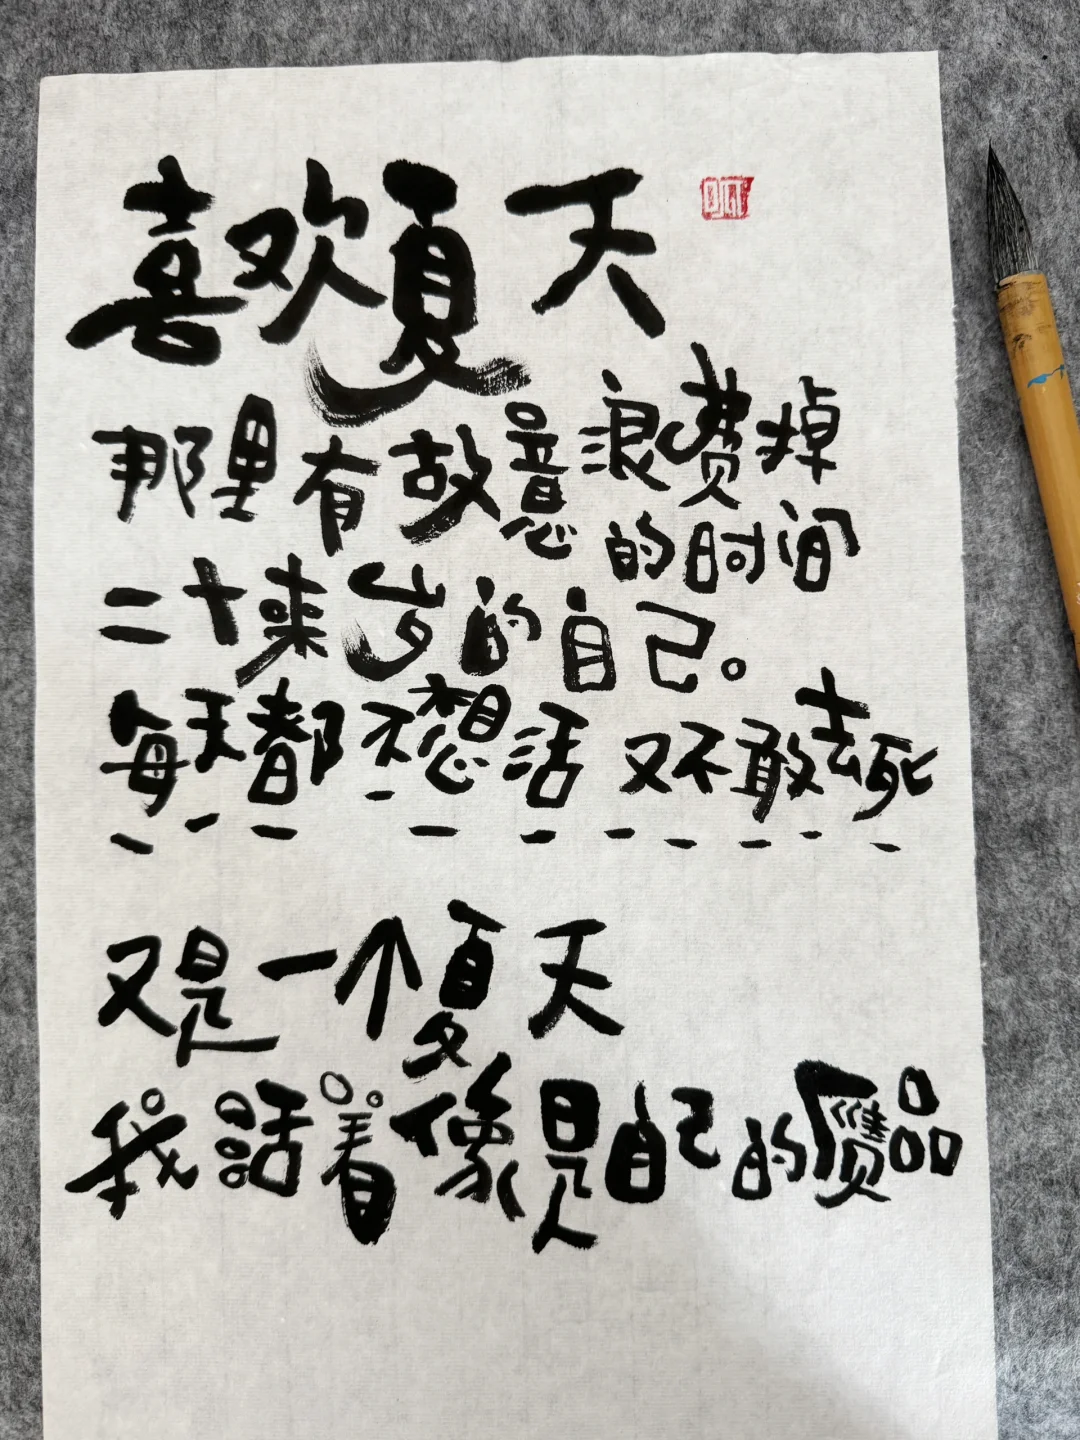 喜欢夏天
那里有故意浪费掉
的时间
二十来岁的自己。
每天都不想活又不敢去死
又是一个夏天
我活着像是自己的赝品